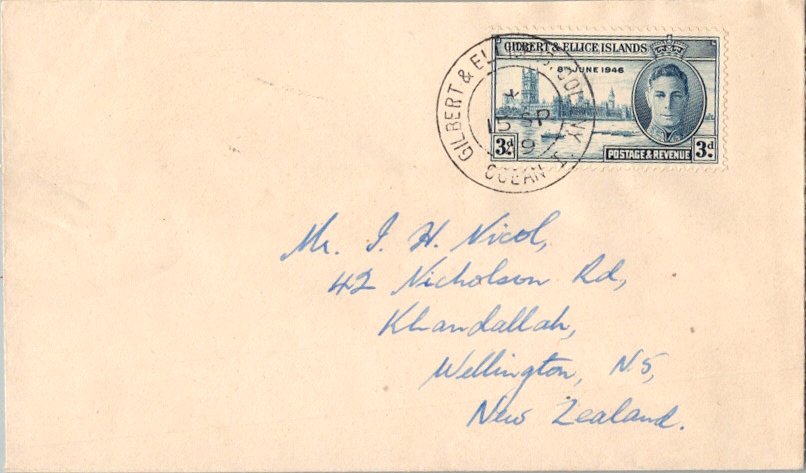 GILBERT & ELLICE ISLANDS
8TH JUNE 1946
3d
POSTAGE & REVENUE
3d
GILBERT & EL COLONY
15 SP
OCEAN
Mr. I. H. Nicol,
42 Nicholson Rd,
Khandallah,
Wellington, N5,
New Zealand.